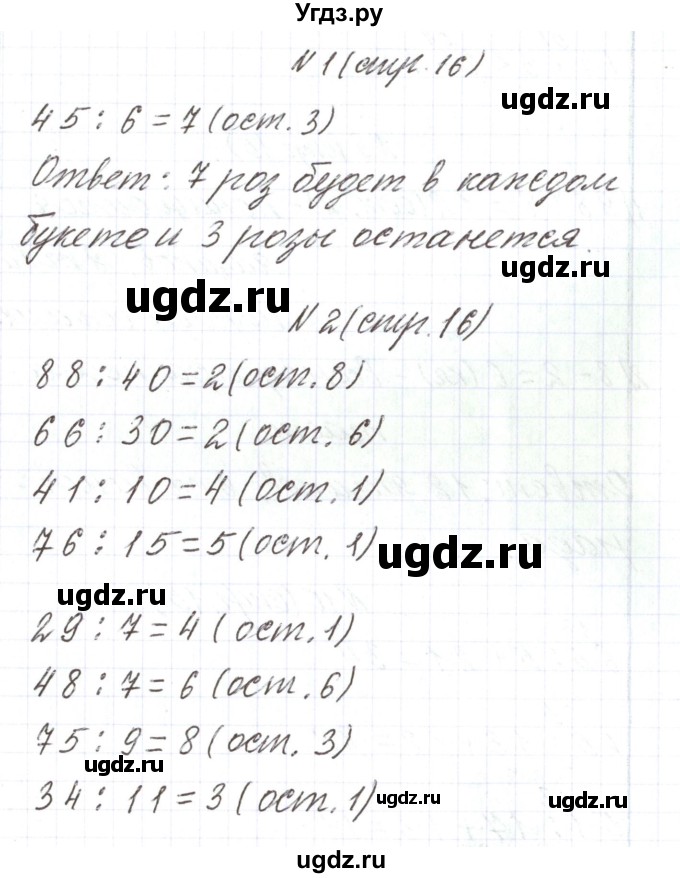 Угдз.ру
N 1 (стр. 16)
ugdz.ru
45 : 6 = 7 (ост. 3)
Ответ: 7 роз будет в каждом
букете и 3 розы останется.
ugdz.ru
ugdz.ru
N 2 (стр. 16)
88 : 40 = 2 (ост. 8)
66 : 30 = 2 (ост. 6)
41 : 10 = 4 (ост. 1)
76 : 15 = 5 (ост. 1)
ugdz.ru
ugdz.ru
29 : 7 = 4 (ост. 1)
48 : 7 = 6 (ост. 6)
75 : 9 = 8 (ост. 3)
ugdz.ru
34 : 11 = 3 (ост. 1)
ugdz.ru
ugdz.ru